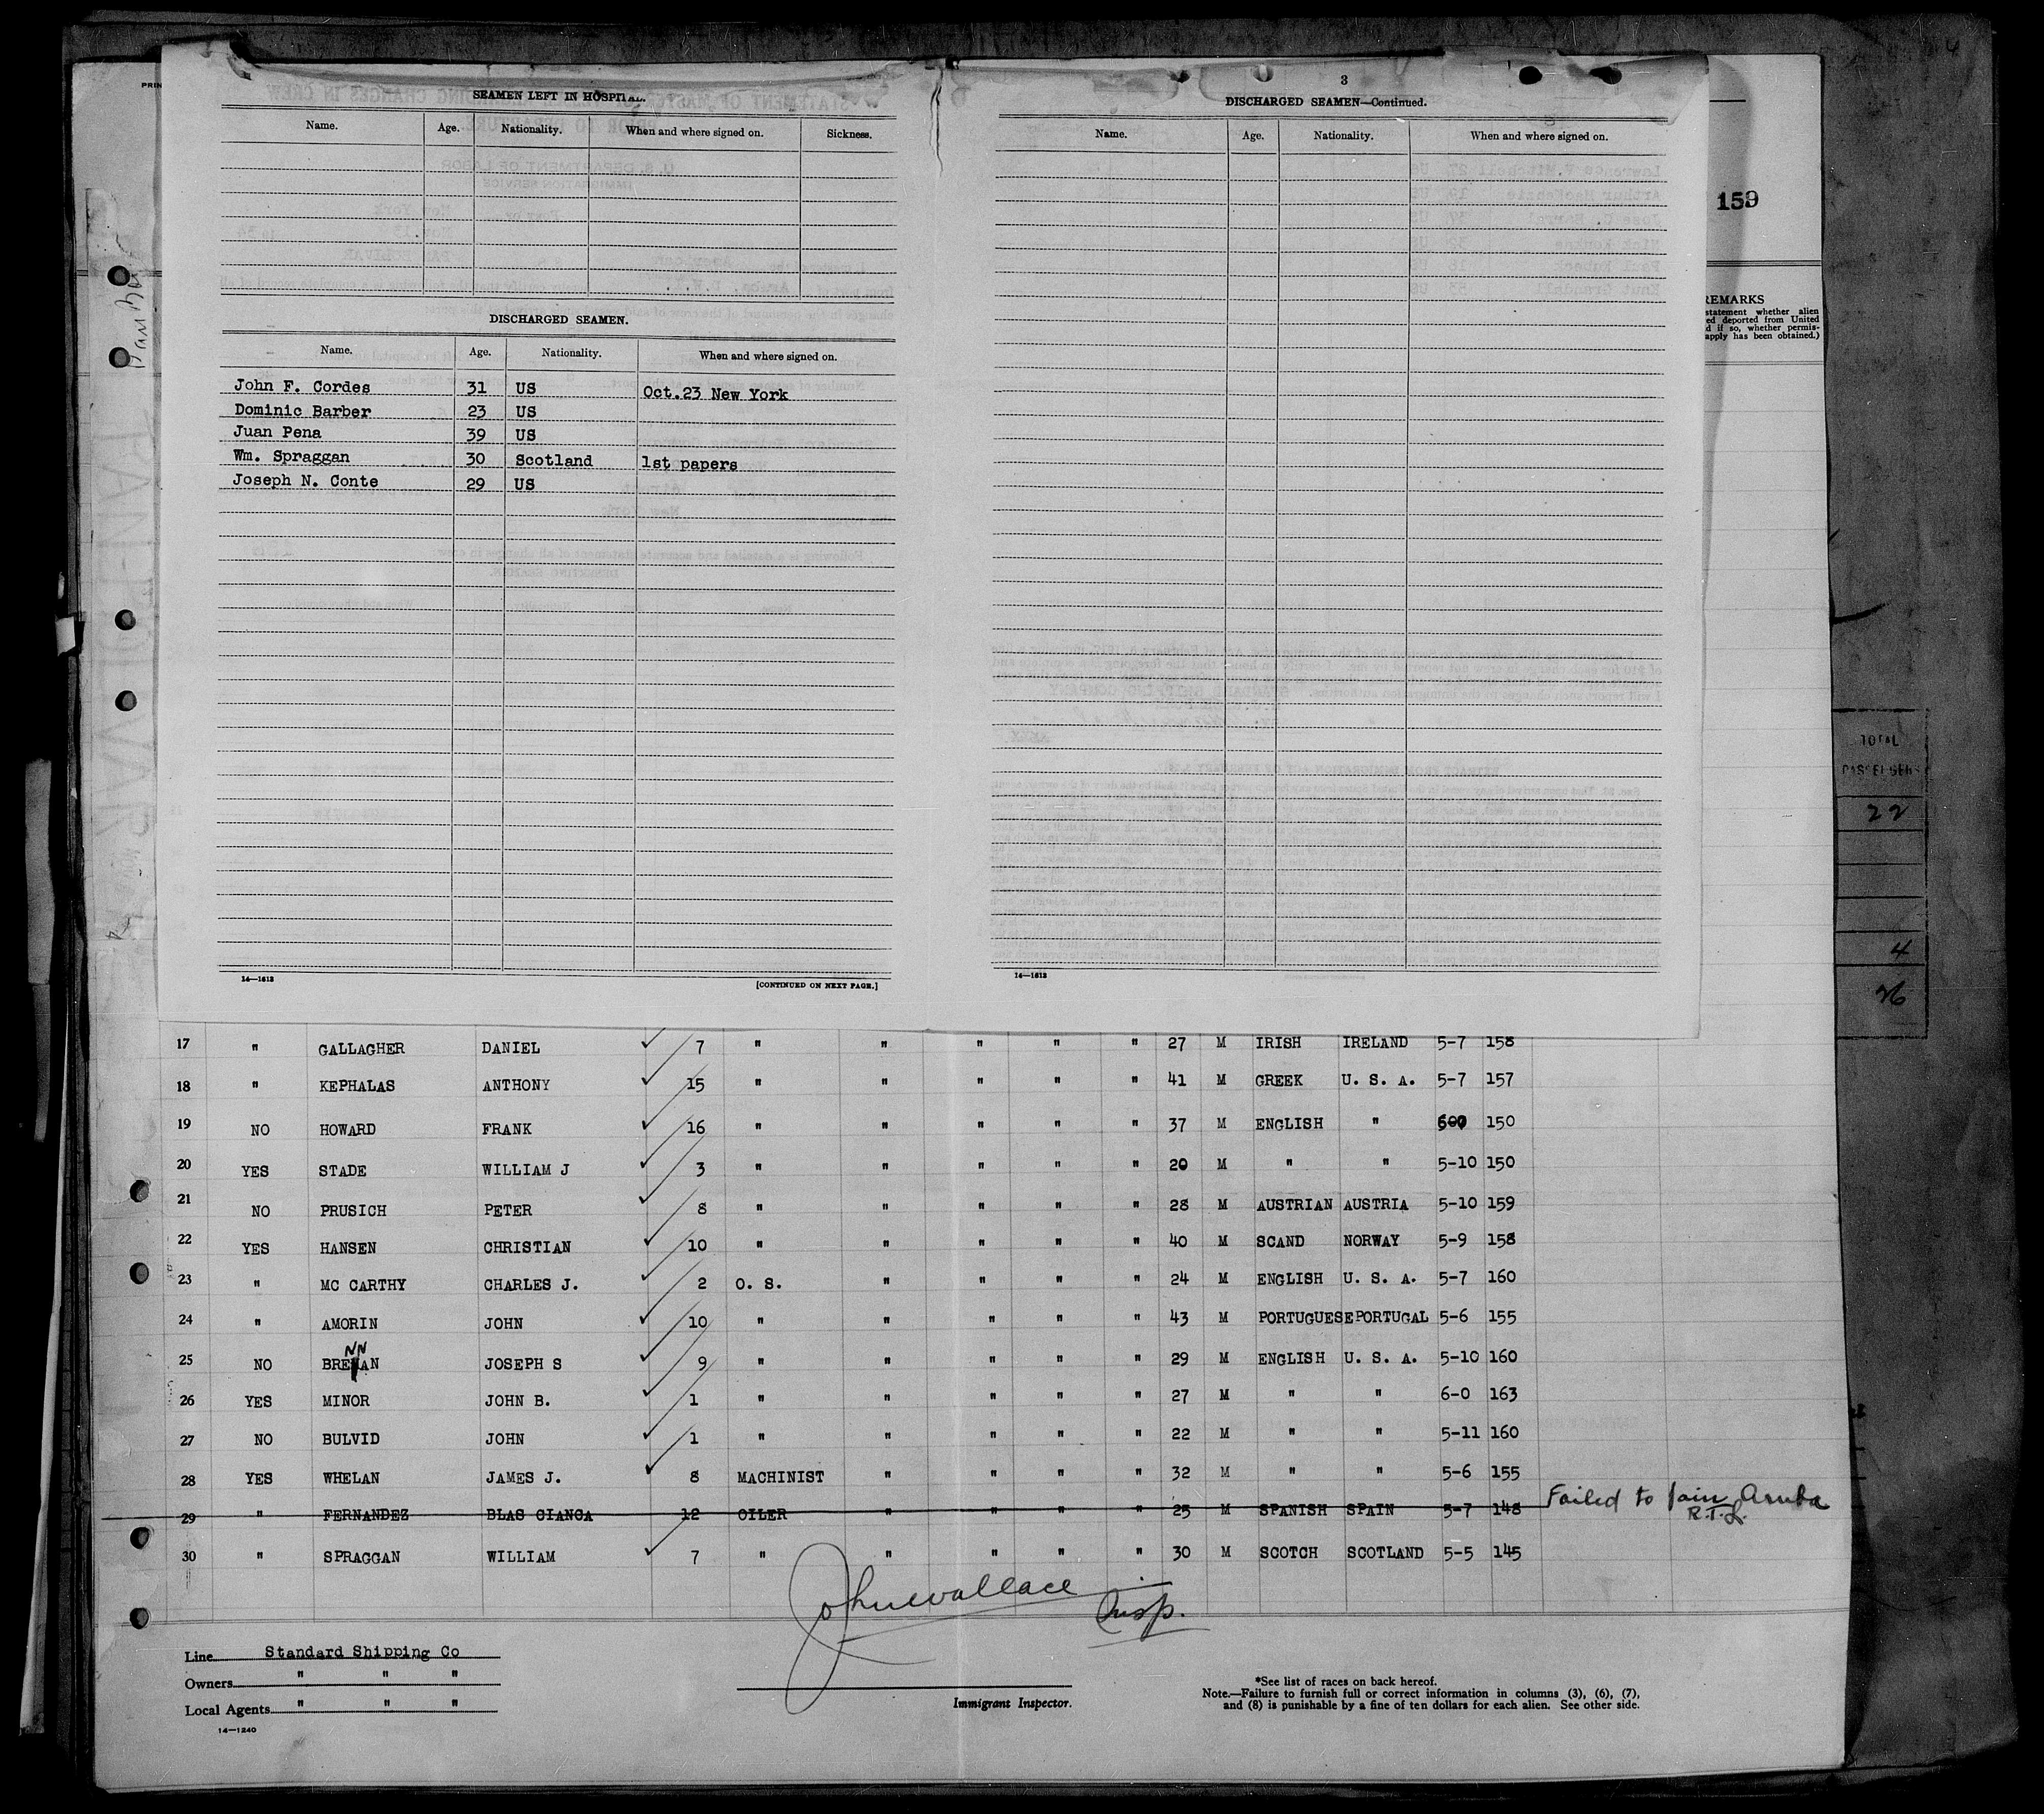 SEAMEN LEFT IN HOSPITAL.
Name. Age. Nationality. When and where signed on. Sickness.
DISCHARGED SEAMEN.
Name. Age. Nationality. When and where signed on.
John F. Cordes 31 US Oct.23 New York
Dominic Barber 23 US
Juan Pena 39 US
Wm. Spraggan 30 Scotland 1st papers
Joseph N. Conte 29 US
14—1613
[CONTINUED ON NEXT PAGE.]
3
DISCHARGED SEAMEN—Continued.
Name. Age. Nationality. When and where signed on.
14—1613
PRIN
159
REMARKS
statement whether alien
ed deported from United
d if so, whether permis-
apply has been obtained.)
TOTAL
PASSENGERS
22
4
26
17 " GALLAGHER DANIEL 7 " " " " " 27 M IRISH IRELAND 5-7 158
18 " KEPHALAS ANTHONY 15 " " " " " 41 M GREEK U. S. A. 5-7 157
19 NO HOWARD FRANK 16 " " " " " 37 M ENGLISH " 150
20 YES STADE WILLIAM J 3 " " " " " 20 M " " 5-10 150
21 NO PRUSICH PETER 8 " " " " " 28 M AUSTRIAN AUSTRIA 5-10 159
22 YES HANSEN CHRISTIAN 10 " " " " " 40 M SCAND NORWAY 5-9 158
23 " MC CARTHY CHARLES J. 2 O. S. " " " " 24 M ENGLISH U. S. A. 5-7 160
24 " AMORIN JOHN 10 " " " " " 43 M PORTUGUESE PORTUGAL 5-6 155
NN
25 NO BRENAN JOSEPH S 9 " " " " " 29 M ENGLISH U. S. A. 5-10 160
26 YES MINOR JOHN B. 1 " " " " " 27 M " " 6-0 163
27 NO BULVID JOHN 1 " " " " " 22 M " " 5-11 160
28 YES WHELAN JAMES J. 8 MACHINIST " " " " 32 M " " 5-6 155
29 " FERNANDEZ BLAS CIANCA 12 OILER " " " " 25 M SPANISH SPAIN 5-7 148 Failed to join Aruba
R.T.L.
30 " SPRAGGAN WILLIAM 7 " " " " " 30 M SCOTCH SCOTLAND 5-5 145
John Wallace
Insp.
Line Standard Shipping Co
Owners " " "
Local Agents " " "
14—1240
Immigrant Inspector.
*See list of races on back hereof.
Note.—Failure to furnish full or correct information in columns (3), (6), (7),
and (8) is punishable by a fine of ten dollars for each alien. See other side.